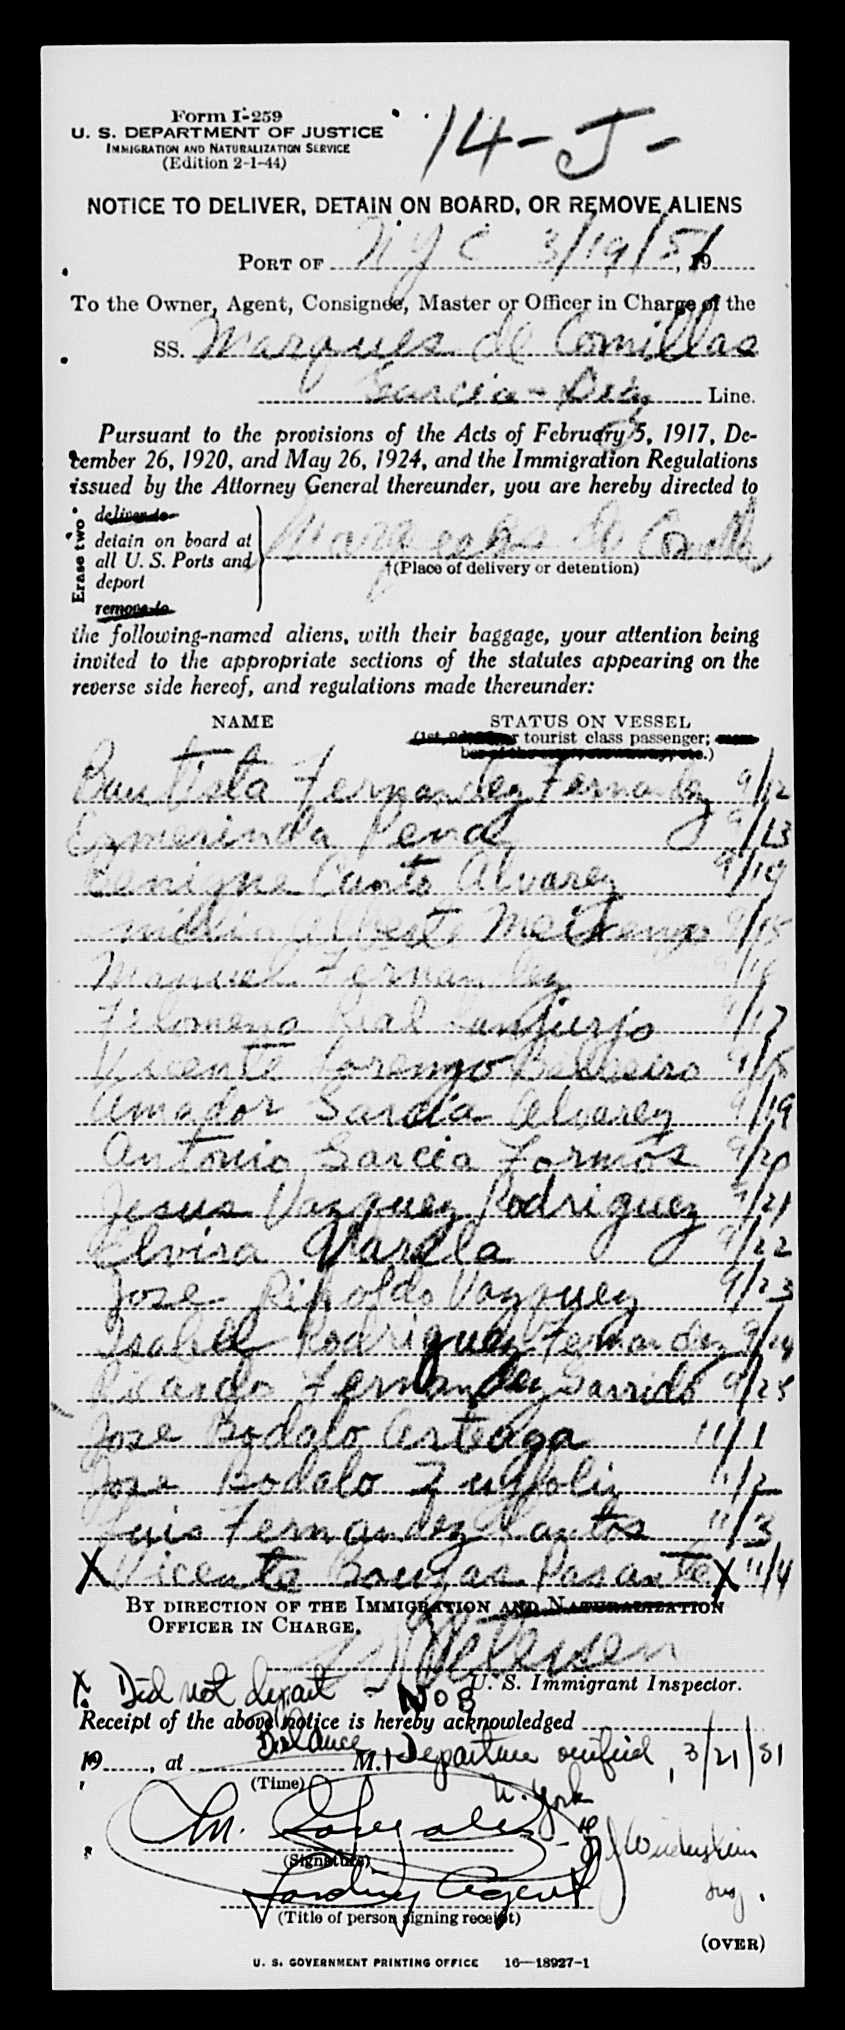 Form I-259
U. S. DEPARTMENT OF JUSTICE
IMMIGRATION AND NATURALIZATION SERVICE
(Edition 2-1-44)
14-J-
NOTICE TO DELIVER, DETAIN ON BOARD, OR REMOVE ALIENS
PORT OF NYC 3/19/51, 19
To the Owner, Agent, Consignee, Master or Officer in Charge of the
SS. Marques de Comillas
Garcia-Diaz Line.
Pursuant to the provisions of the Acts of February 5, 1917, De-
cember 26, 1920, and May 26, 1924, and the Immigration Regulations
issued by the Attorney General thereunder, you are hereby directed to
Erase two
deliver to
detain on board at
all U. S. Ports and
deport
remove to
Marques de Comillas
(Place of delivery or detention)
the following-named aliens, with their baggage, your attention being
invited to the appropriate sections of the statutes appearing on the
reverse side hereof, and regulations made thereunder:
NAME STATUS ON VESSEL
(1st, 2d, or tourist class passenger; mem-
ber of the crew, stowaway, etc.)
Bautista Fernandez Fernandez 9/12
Esmerinda Pena 9/13
Benigne Canto Alvarez 9/14
Alberto 9/15
Manuel Fernandez 9/16
Filomena Real Sanjurjo 9/17
Vicente Lorenzo 9/18
Amador Garcia Alvarez 9/19
Antonio Garcia Formos 9/20
Jesus Vazquez Rodriguez 9/21
Elvira Varela 9/22
Jose Ripoldo Vazquez 9/23
Isabel Rodriguez Fernandez 9/24
Ricardo Fernandez Garrido 9/25
Jose Bodalo Arteaga 11/1
Jose Bodalo 11/2
Luis Fernandez Santos 11/3
X Vicente Bouzas Pasante X 11/4
BY DIRECTION OF THE IMMIGRATION AND NATURALIZATION
OFFICER IN CHARGE.
Petersen
U. S. Immigrant Inspector.
X. Did not depart - NOB
Receipt of the above notice is hereby acknowledged
19, at M.
(Time)
Balance Departure verified, 3/21/51
N. York
M. Gonzalez
(Signature)
Landing Agent
(Title of person signing receipt)
(OVER)
U. S. GOVERNMENT PRINTING OFFICE 16—18927-1